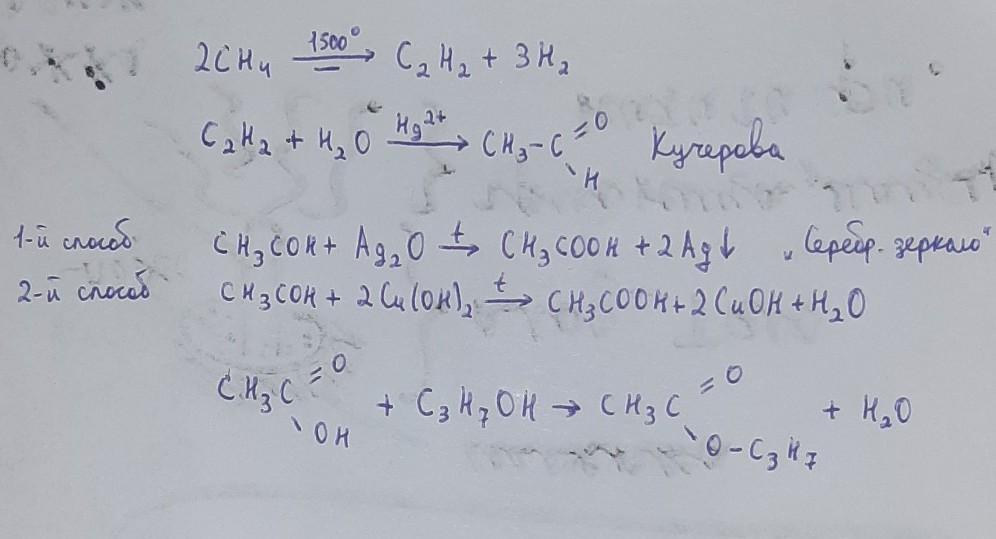 2CH₄ 1500° → C₂H₂ + 3H₂
C₂H₂ + H₂O Hg²⁺ → CH₃-C=O H Кучерова
1-й способ CH₃COH + Ag₂O t → CH₃COOH + 2Ag↓ „Серебр. зеркало"
2-й способ CH₃COH + 2Cu(OH)₂ t → CH₃COOH + 2CuOH + H₂O
CH₃C=O OH + C₃H₇OH → CH₃C=O O-C₃H₇ + H₂O